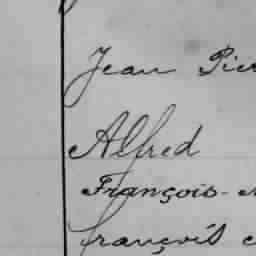 Jean Pier
Alfred
François-
françois